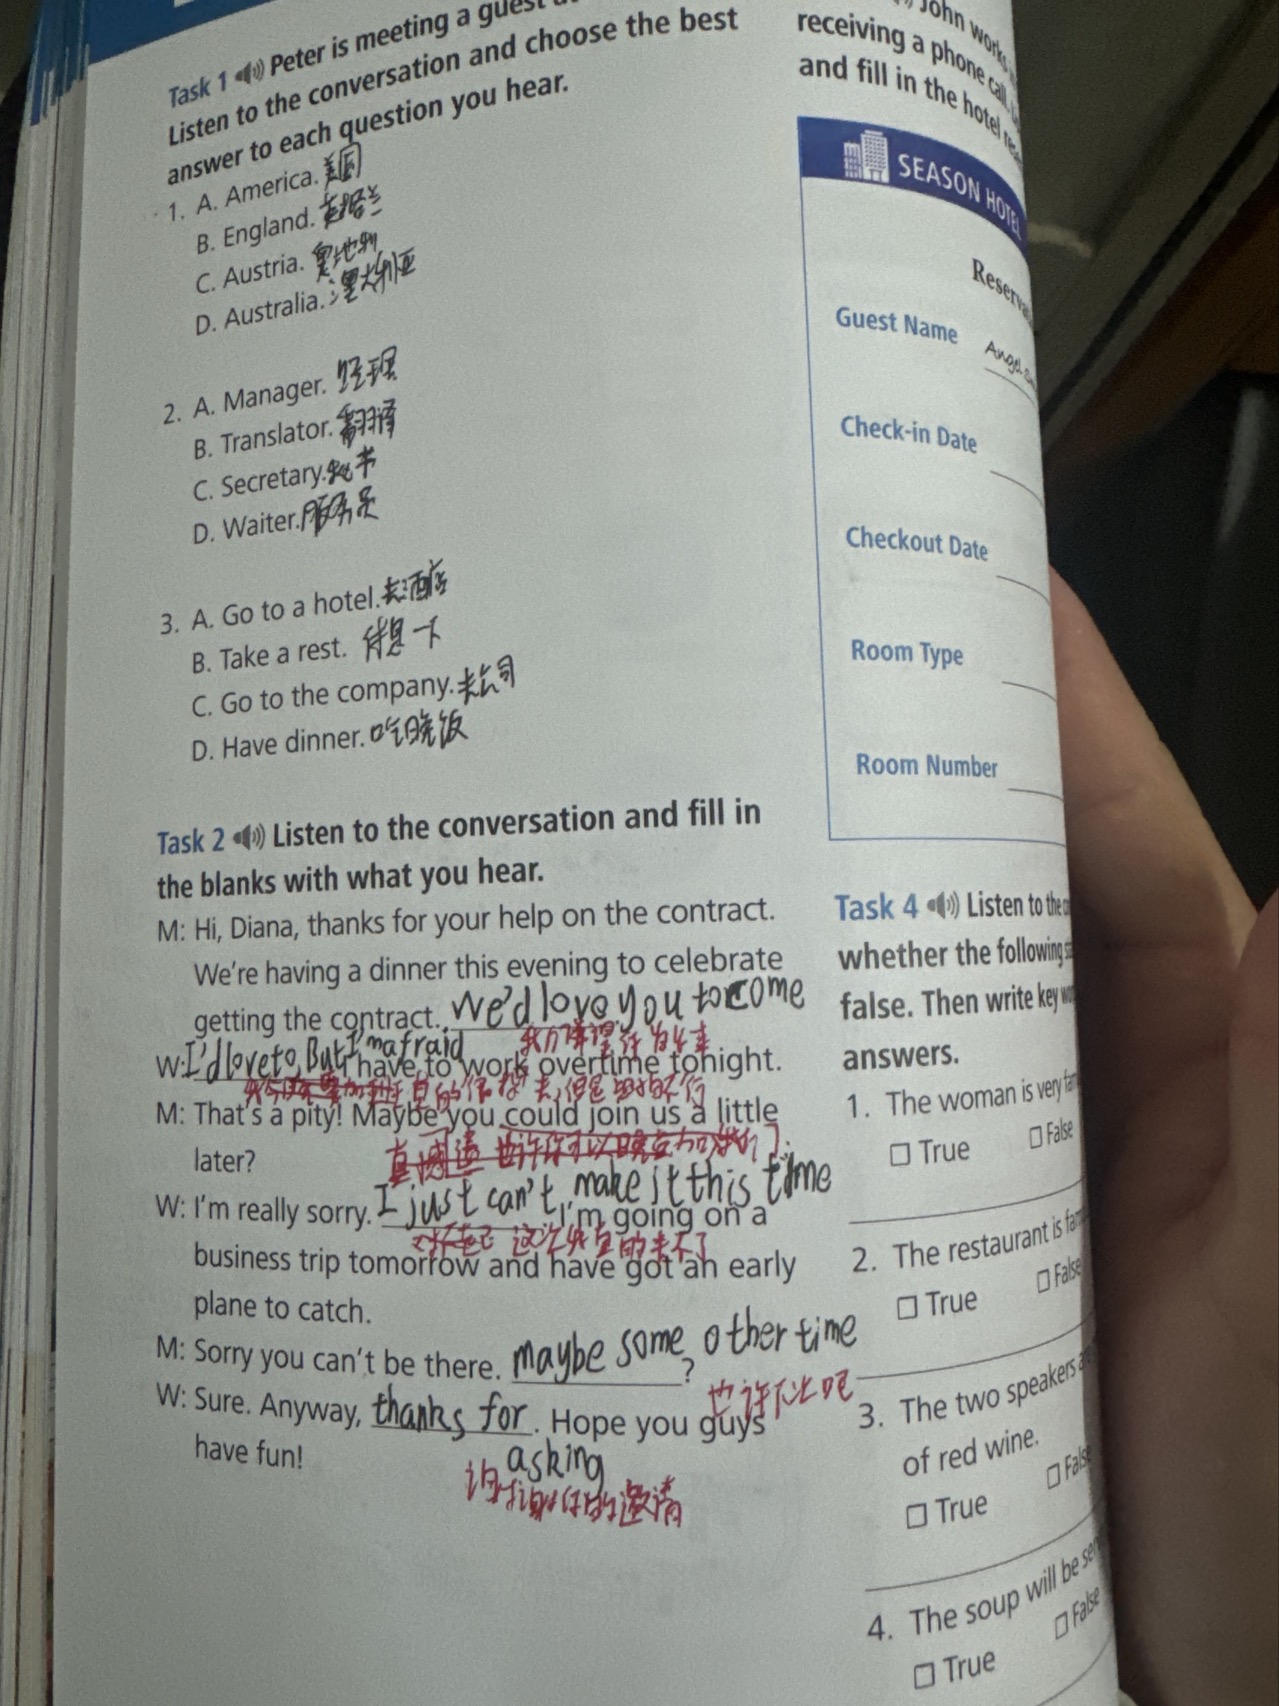 Task 1 Peter is meeting a guest
Listen to the conversation and choose the best
answer to each question you hear.
1. A. America. 美国
B. England. 英格兰
C. Austria. 奥地利
D. Australia. 澳大利亚
2. A. Manager. 经理
B. Translator. 翻译
C. Secretary. 秘书
D. Waiter. 服务员
3. A. Go to a hotel. 去酒店
B. Take a rest. 休息一下
C. Go to the company. 去公司
D. Have dinner. 吃晚饭
Task 2 Listen to the conversation and fill in
the blanks with what you hear.
M: Hi, Diana, thanks for your help on the contract.
We're having a dinner this evening to celebrate
getting the contract. We'd love you to come
我们希望你
W: I'd love to, But I'm afraid I have to work overtime tonight.
真的很想去,但是
M: That's a pity! Maybe you could join us a little
真遗憾 也许你可以晚点加我们
later?
W: I'm really sorry. I just can't make it this time, I'm going on a
对不起 这次我真的来不了
business trip tomorrow and have got an early
plane to catch.
M: Sorry you can't be there. maybe some other time?
也许下次呢
W: Sure. Anyway, thanks for asking. Hope you guys
have fun!
谢谢你的邀请
John works
receiving a phone call.
and fill in the hotel
SEASON HOTEL
Guest Name
Check-in Date
Checkout Date
Room Type
Room Number
Task 4 Listen to the
whether the following
false. Then write key
answers.
1. The woman is very
□ True □ False
2. The restaurant is
□ True □ False
3. The two speakers
of red wine.
□ True □ False
4. The soup will be
□ True □ False